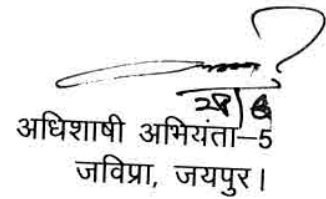 अधिशाषी अभियंता–5
जविप्रा, जयपुर।